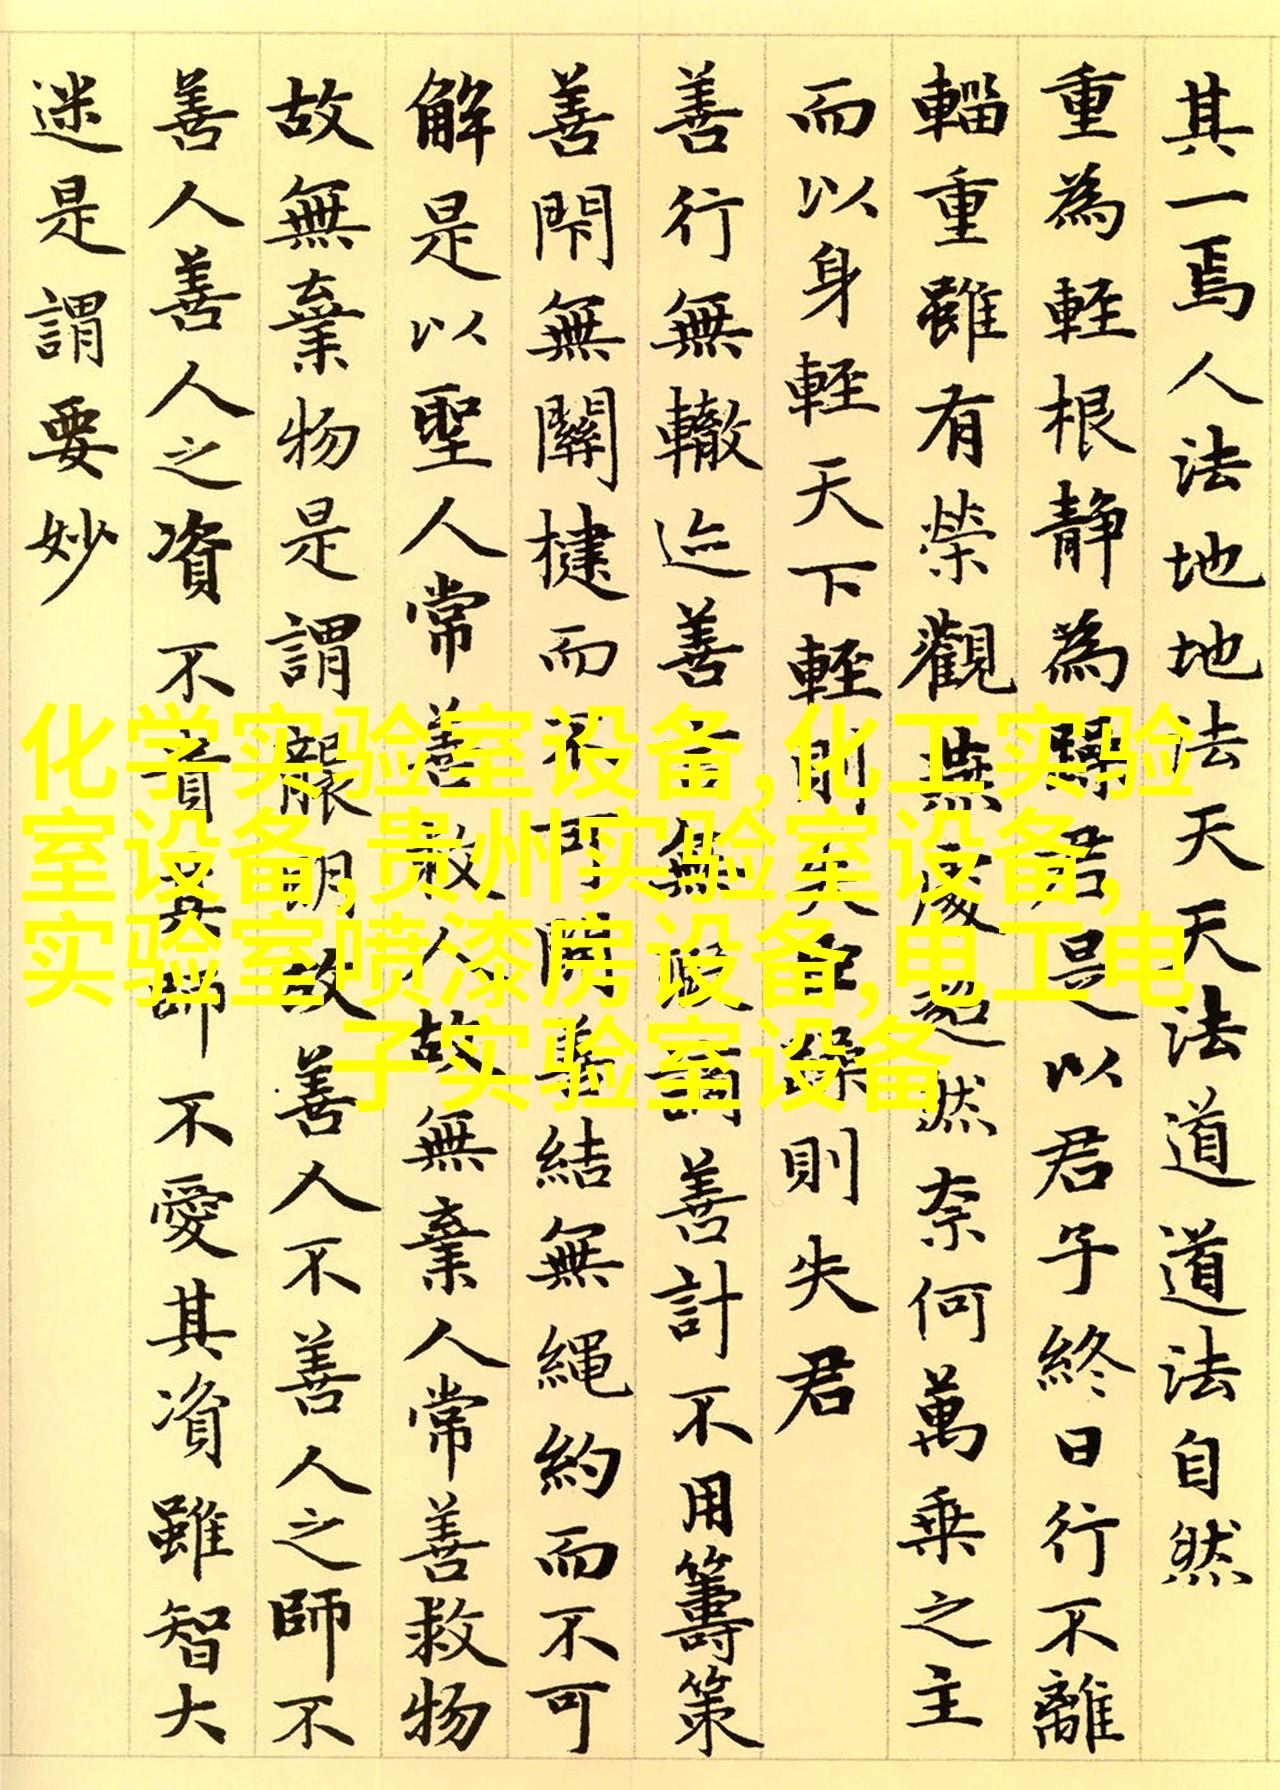 其一焉人法地地法天天法道道法自然
重為輕根静為躁君是以君子終日行不離
輜重雖有榮觀燕處超然奈何萬乘之主
而以身輕天下輕則失臣躁則失君
善行無轍迹善言無瑕謫善計不用籌策
善閇無關楗而不可開善結無繩約而不可
解是以聖人常善救人故無棄人常善救物
故無棄物是謂襲明故善人不善人之師不
善人善人之資不貴其師不愛其資雖智大
迷是謂要妙
化学实验室设备,化工实验
室设备,贵州实验室设备,
实验室喷漆房设备,电工电
子实验室设备